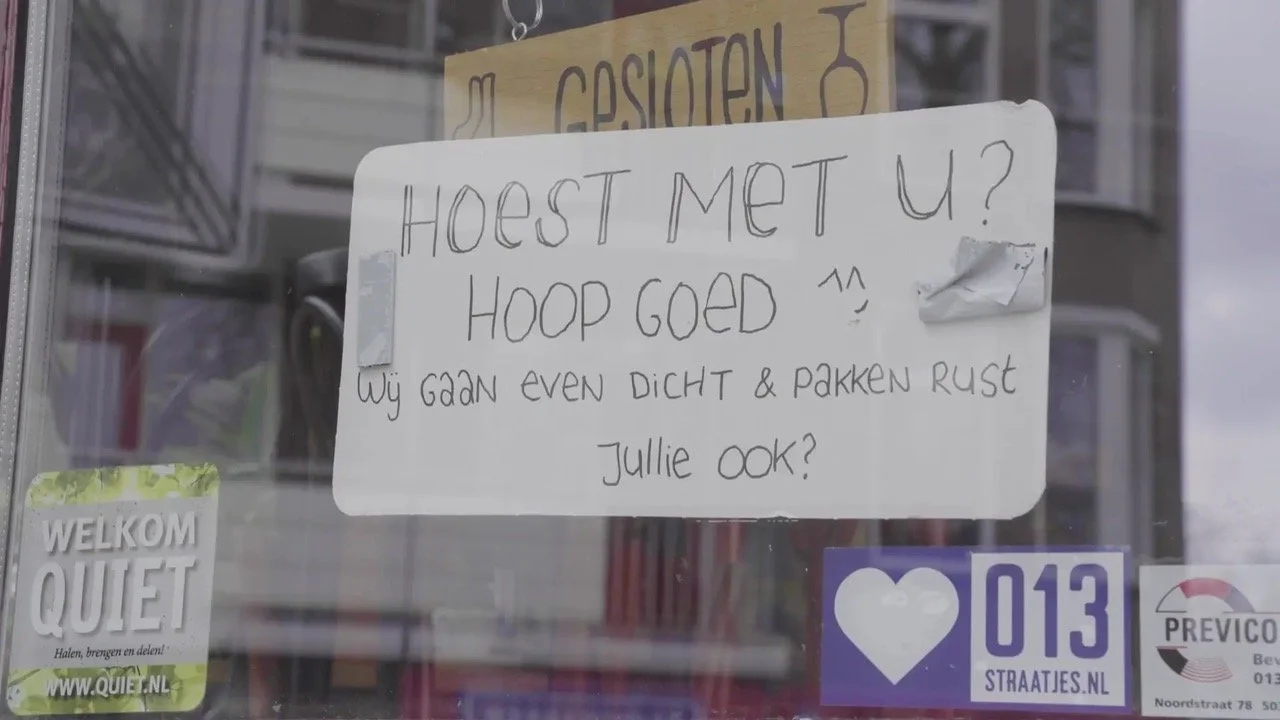 GESLOTEN
HOEST MET U?
HOOP GOED ^^
WIJ GAAN EVEN DICHT & PAKKEN RUST
JULLIE OOK?
WELKOM
QUIET
Halen, brengen en delen!
WWW.QUIET.NL
013
STRAATJES.NL
PREVICO
Bev
013
Noordstraat 78 50